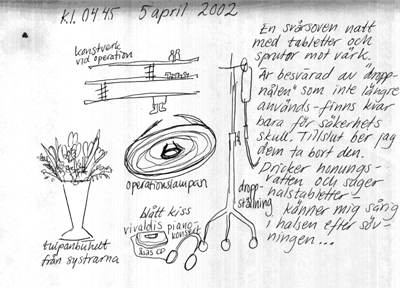 Kl. 04.45 5 april 2002
konstverk
vid operation
operationslampan
tulpanbukett
från systrarna
blått kiss
vivaldis piano-
konsert
dropp-
ställning
En svårsoven natt
med tabletter och
sprutor mot värk.
Är besvärad av "dropp-
nålen" som inte längre
används - finns kvar
bara för säkerhets
skull. Tillslut ber jag
dem ta bort den.
Dricker honungs-
vatten och suger
halstabletter -
känner mig sårig
i halsen efter söv-
ningen...